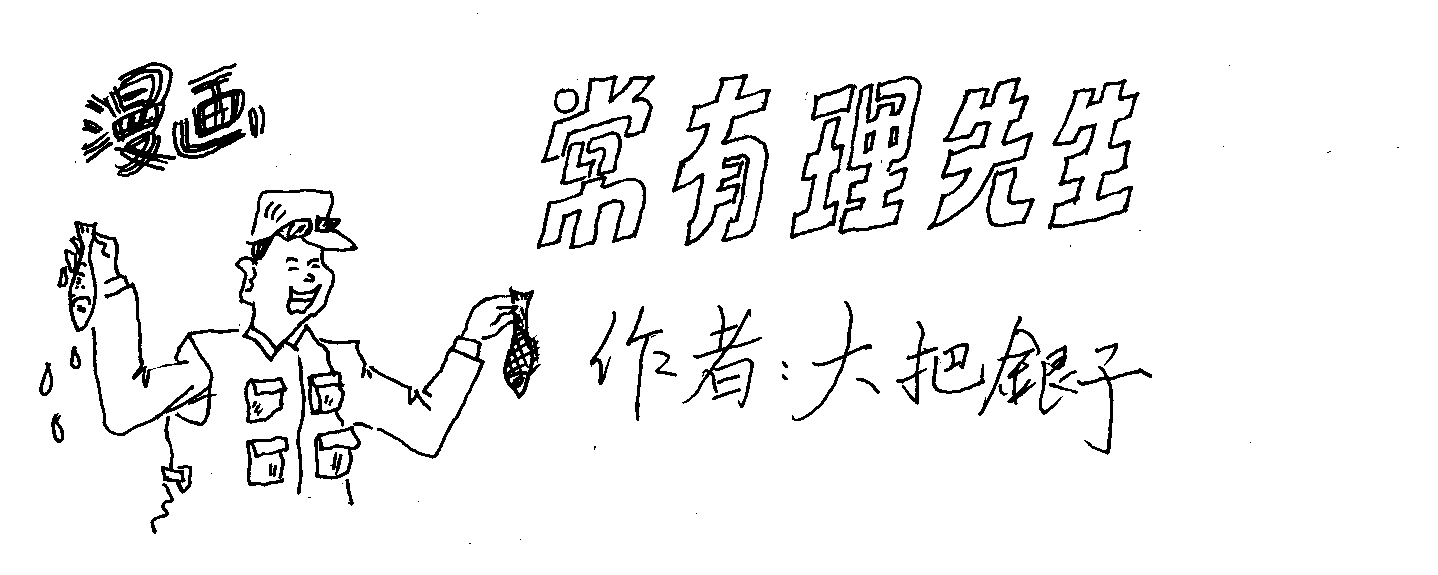 漫画
常有理先生
作者:大把銀子